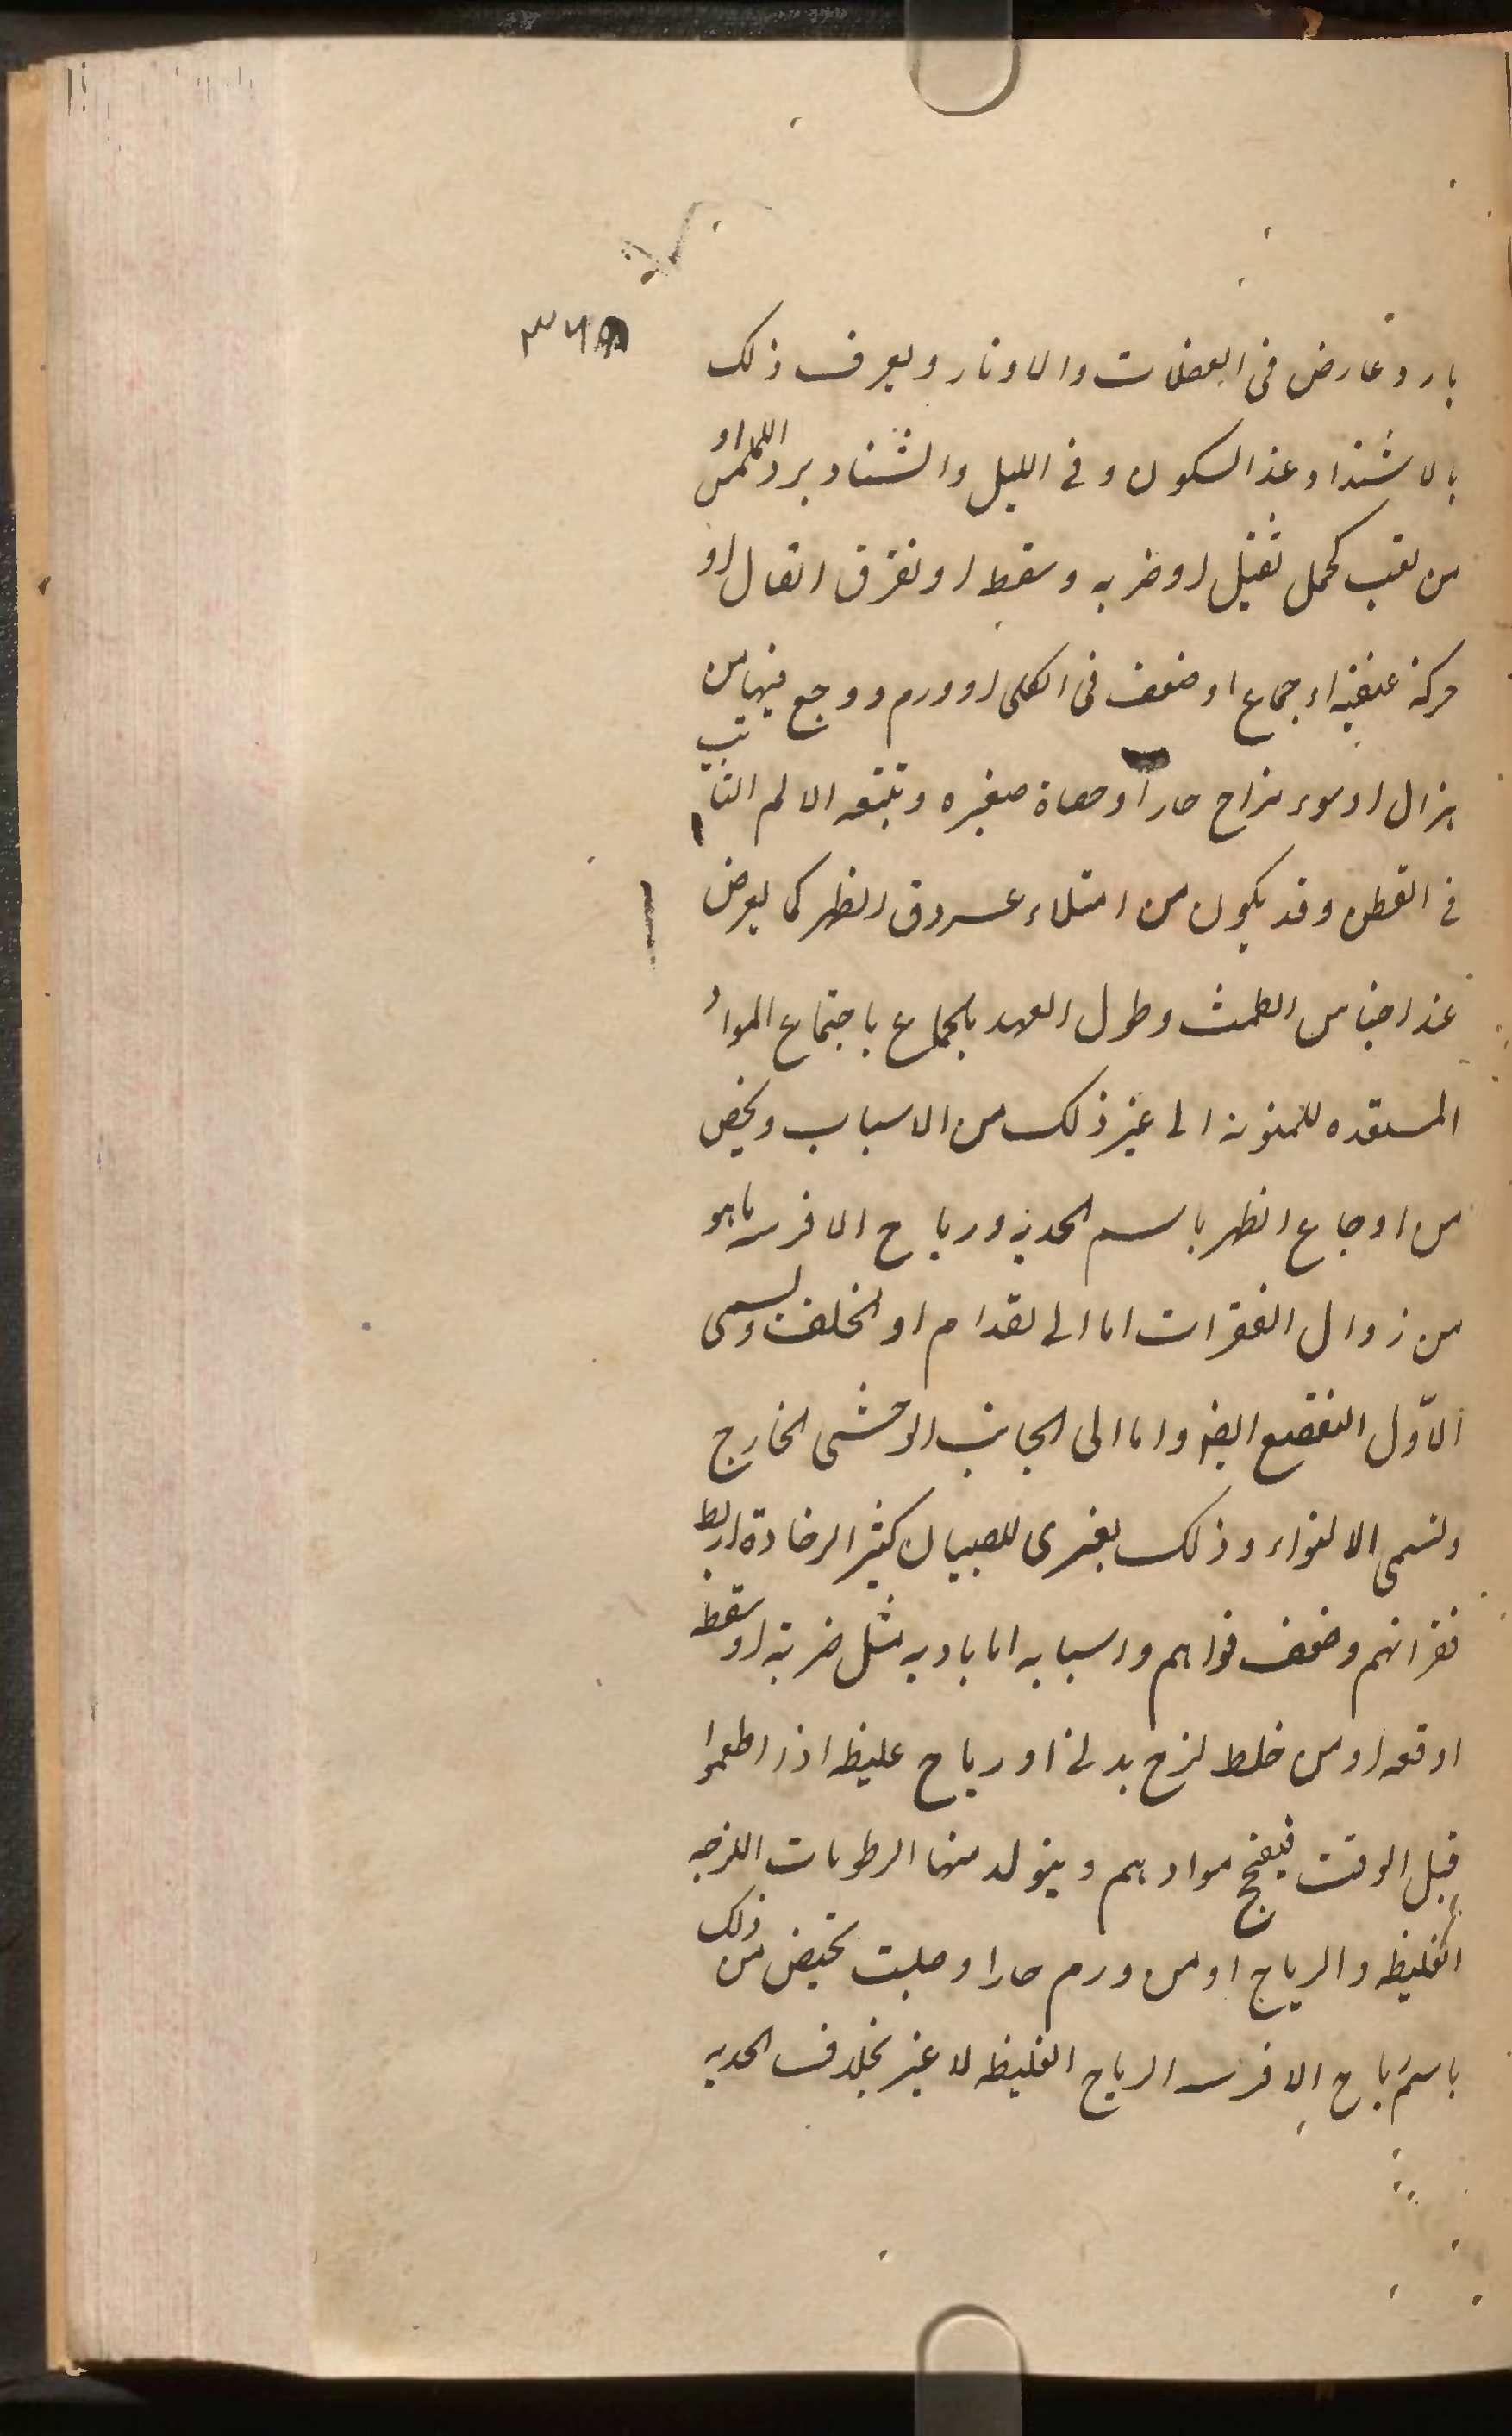 بارد عارض فى العضلات والاوتار ويعرف ذلك
بالاشتداد عند السكون وفى الليل والشتاء وبرد الملمس او
من تعب كحمل ثقيل او ضربه وسقط او تفرق اتصال او
حركة عنيفة او جماع او ضعف فى الكلى او ورم ووجع فيها من
هزال او سوء مزاج حار او حصاة صغيره وتتبعه الالم الثابت
فى القطن وقد يكون من امتلاء عروق الظهر كما يعرض
عند احتباس الطمث وطول العهد بالجماع باجتماع المواد
المستعده للمنويه الى غير ذلك من الاسباب ويخص
من اوجاع الظهر باسم الحدبه ورياح الافرسه ما هو
من زوال الفقرات اما الى القدام او الخلف ويسمى
الاول التقصع ايضا واما الى الجانب الوحشى الخارج
وتسمى الالتواء وذلك يعترى للصبيان كثير الرخاوة اربط
فقراتهم وضعف قواهم واسبابه اما باديه مثل ضربة او سقطه
او قعه او من خلط لزج بدنى او رياح غليظه اذا اطعموا
قبل الوقت فيفج موادهم ويتولد منها الرطوبات اللزجه
الغليظه والرياح او من ورم حار او صلب يختص من ذلك
باسم رياح الافرسه الرياح الغليظه لا غير بخلاف الحدبه